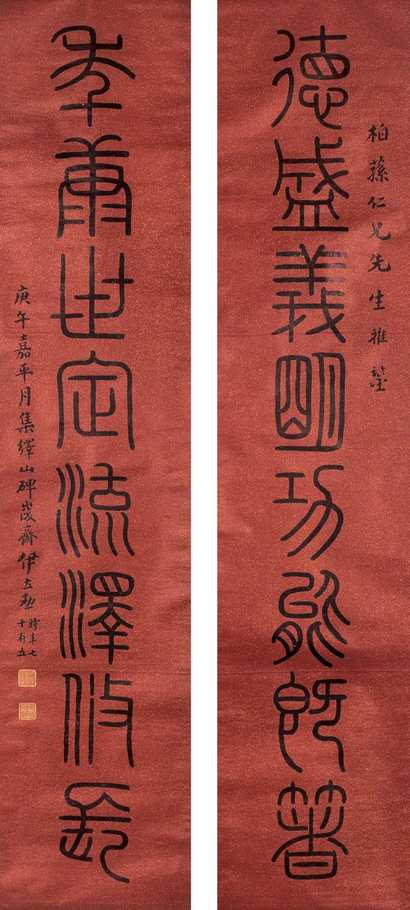 柏蓀仁兄先生雅鑒
德盛義朙功能既箸
年康世定流澤攸長
庚午嘉平月集繹山碑峻齋伊立勳
時年七
十有五